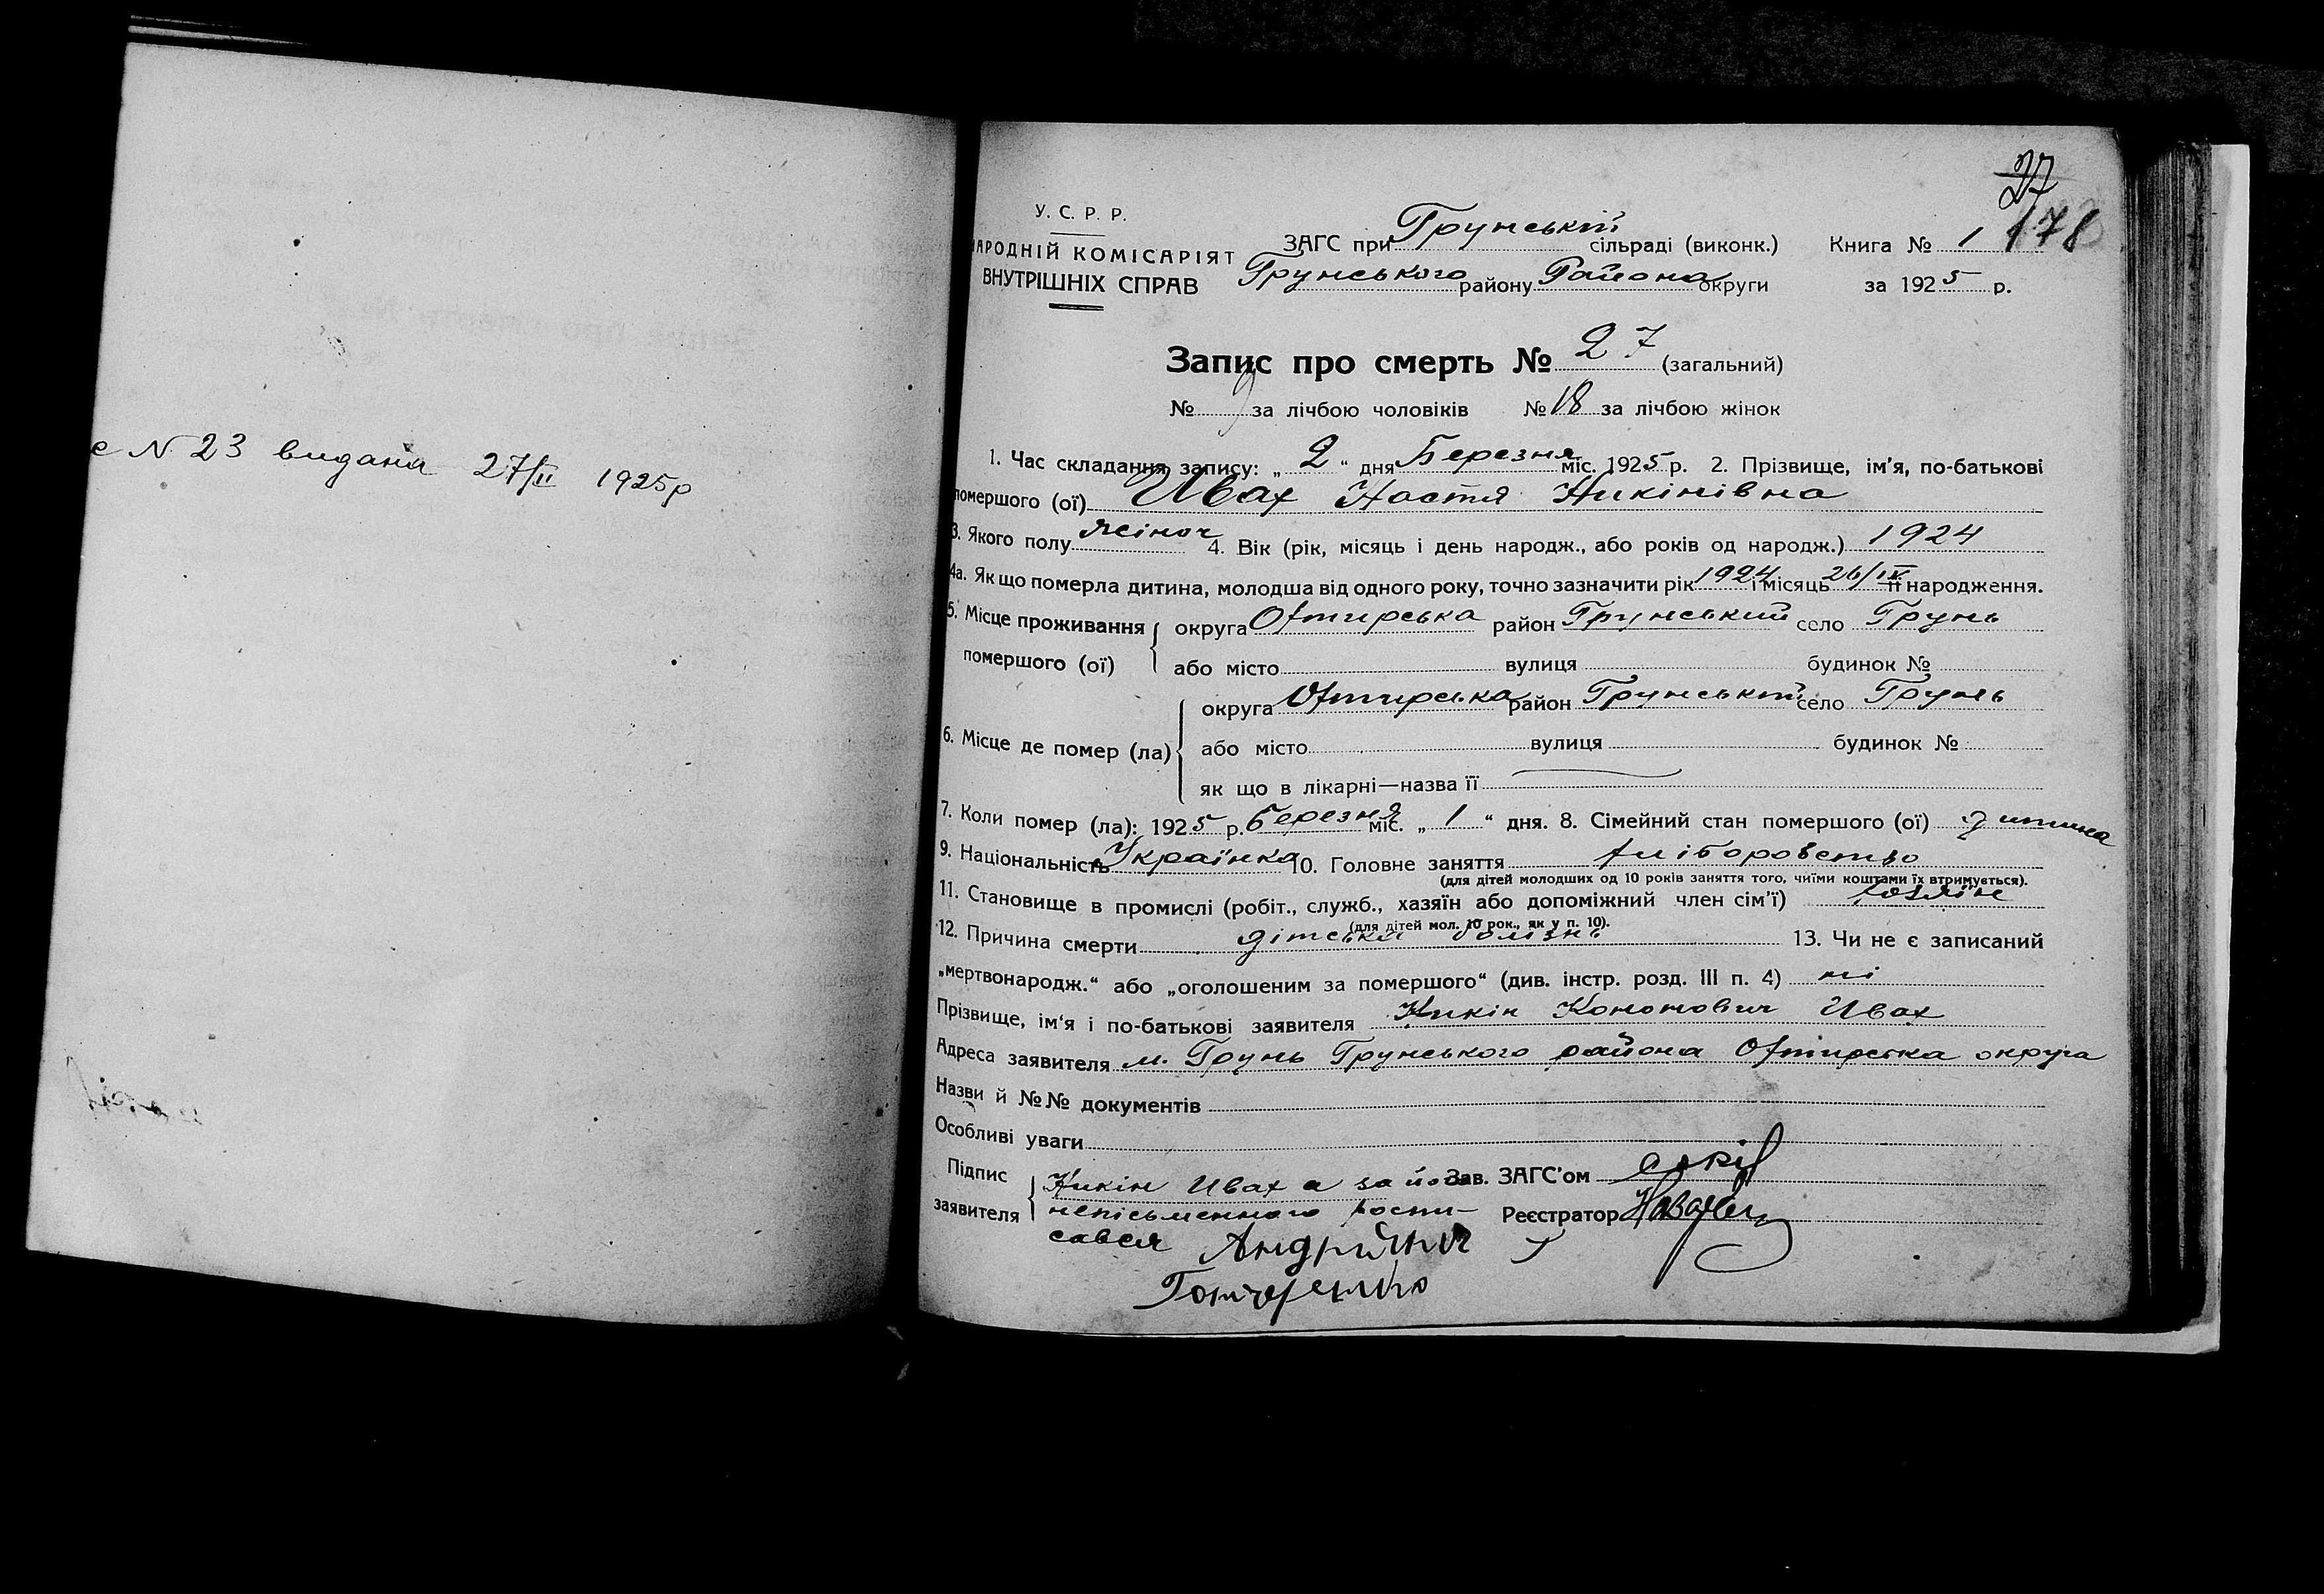 е N 23 видана 27/II 1925р
27
178
У. С. Р. Р.
НАРОДНІЙ КОМІСАРІЯТ
ВНУТРІШНІХ СПРАВ
ЗАГС при Грунській сільраді (виконк.) Книга № 1
Грунського району Района округи за 1925 р.
Запис про смерть № 27 (загальний)
№ за лічбою чоловіків № 18 за лічбою жінок
1. Час складання запису: „ 2 “ дня Березня міс. 1925 р. 2. Прізвище, ім'я, по-батькові
помершого (ої) Ивах Настя Никінівна
3. Якого полу жіноч 4. Вік (рік, місяць і день народж., або років од народж.) 1924
4а. Як що померла дитина, молодша від одного року, точно зазначити рік 1924 і місяць 26/IV її народження.
5. Місце проживання помершого (ої) округа Охтирська район Грунський село Грунь
або місто вулиця будинок №
6. Місце де помер (ла) округа Охтирська район Грунський село Грунь
або місто вулиця будинок №
як що в лікарні—назва її
7. Коли помер (ла): 1925 р. Березня міс. „ 1 “ дня. 8. Сімейний стан помершого (ої) дитина
9. Національність Українка 10. Головне заняття хліборобство
(для дітей молодших од 10 років заняття того, чиїми коштами їх втримується).
11. Становище в промислі (робіт., служб., хазяїн або допоміжний член сім'ї) хозяїн
(для дітей мол. 10 рок., як у п. 10).
12. Причина смерти дітська болізнь 13. Чи не є записаний
„мертвонародж.“ або „оголошеним за помершого“ (див. інстр. розд. III п. 4) ні
Прізвище, ім'я і по-батькові заявителя Никін Кононович Ивах
Адреса заявителя м. Грунь Грунського района Охтирска округа
Назви й №№ документів
Особливі уваги
Підпис заявителя Никін Ивах а за його Зав. ЗАГС'ом
непісьменного роспи- Реєстратор
сався Андрійчи
Гончаренко